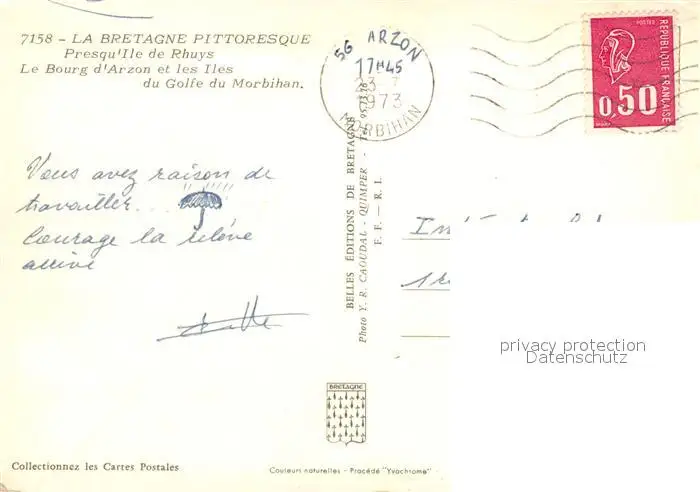 7158 - LA BRETAGNE PITTORESQUE
Presqu'Ile de Rhuys
Le Bourg d'Arzon et les Iles
du Golfe du Morbihan.
56 ARZON
17H45
23 - 7
1973
MORBIHAN
POSTES
REPUBLIQUE FRANÇAISE
0,50
Vous avez raison de
travailler...
Courage la relève
arrive
BELLES ÉDITIONS DE BRETAGNE
Photo Y. R. CAOUDAL - QUIMPER - Tél.
F. F. — R. I.
privacy protection
Datenschutz
BRETAGNE
Collectionnez les Cartes Postales
Couleurs naturelles - Procédé "Yvachrome"